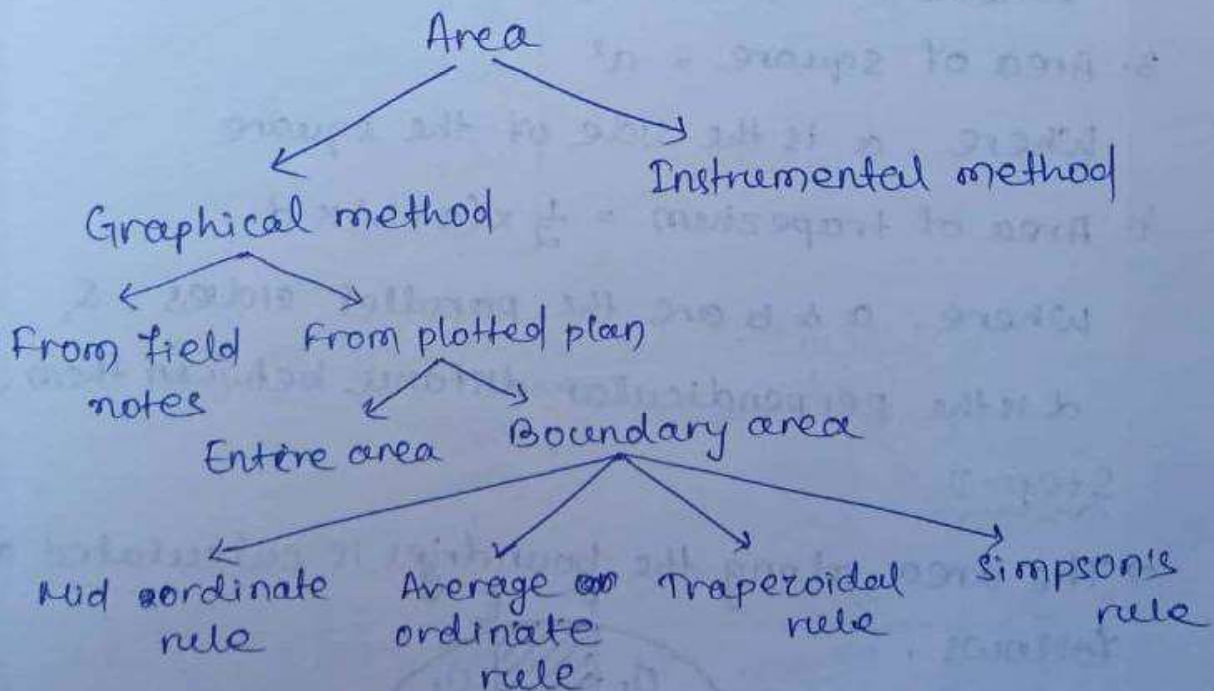 Area
Graphical method
Instrumental method
From field
notes
From plotted plan
Entire area
Boundary area
Mid oordinate
rule
Average
ordinate
rule
Trapezoidal
rule
Simpson's
rule